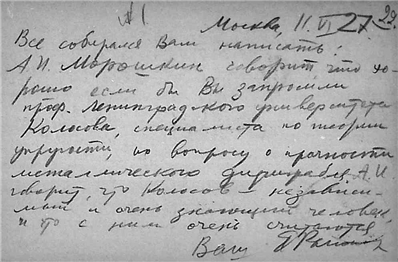 №1
Москва, 11.VI 27 22.
Все собирался Вам написать:
А.И. Морошкин говорит что хо-
рошо если бы Вы запросили
проф. Ленинградского университета
Колосова, специалиста по теории
упругости, по вопросу о прочности
металлического дирижабля. А.И.
говорит, что Колосов – независи-
мый и очень знающий человек
и что с ним очень считаются
Ваш